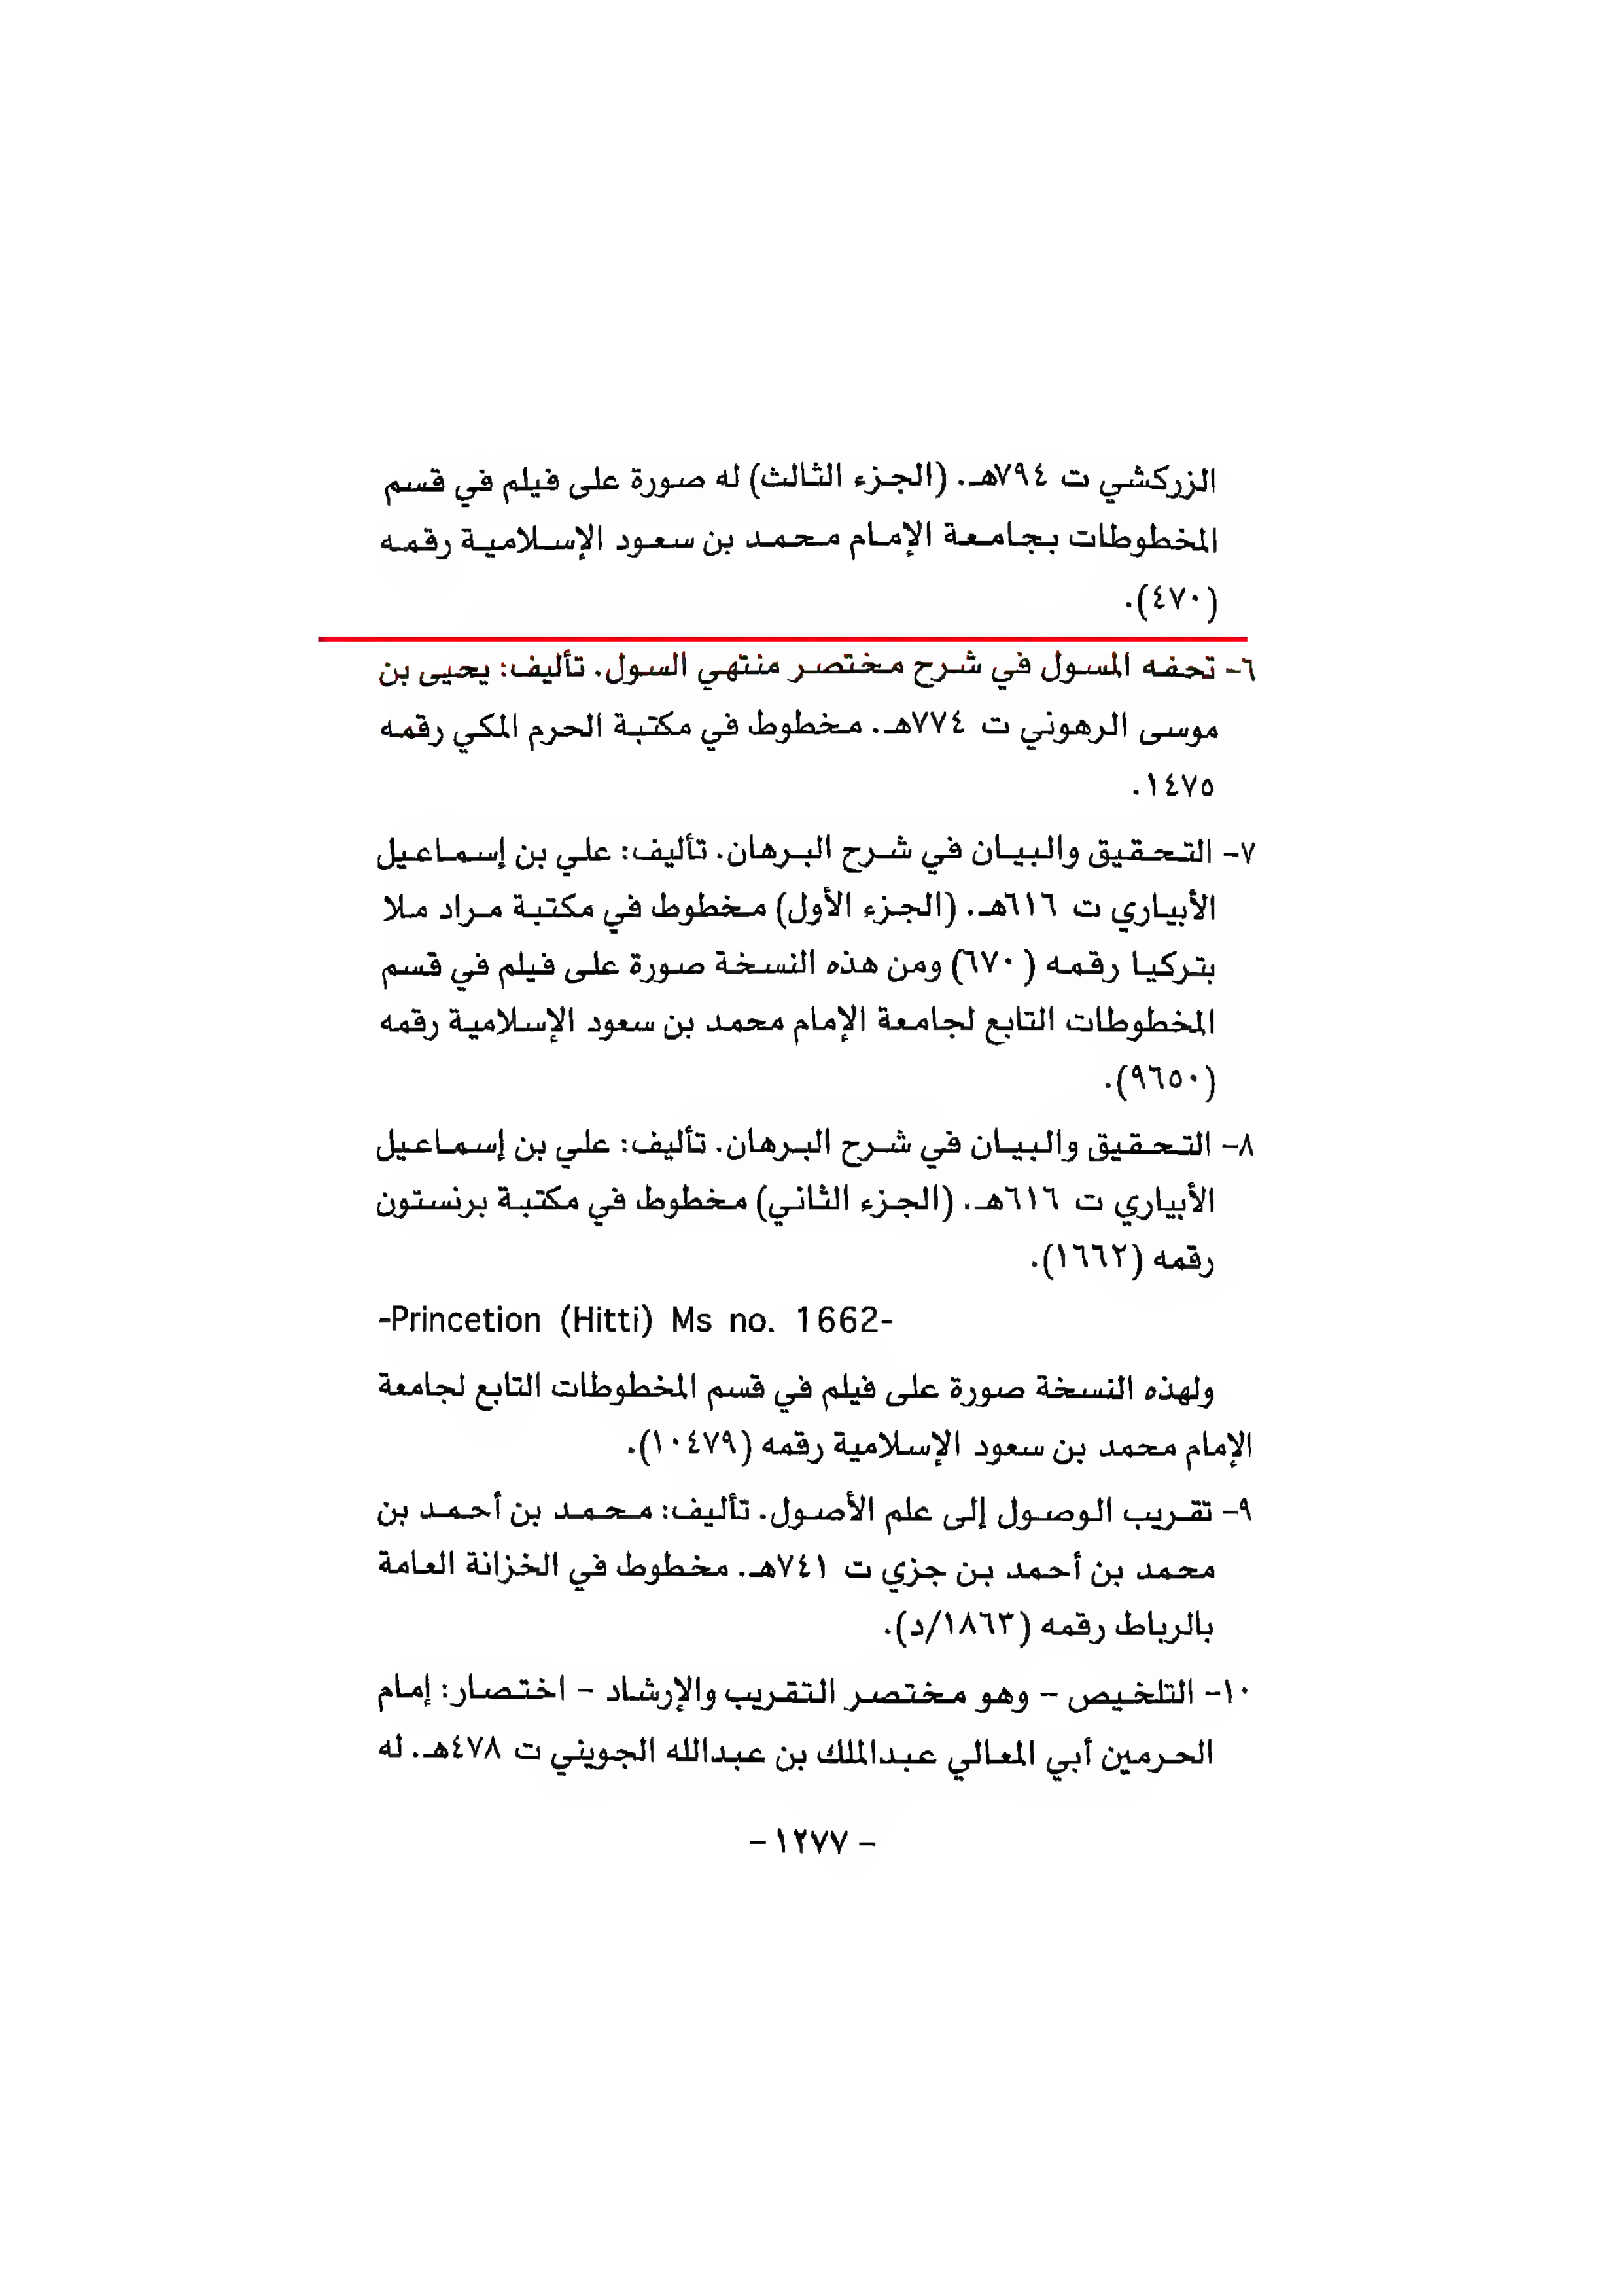 الزركشي ت ٧٩٤هـ. (الجزء الثالث) له صورة على فيلم في قسم
المخطوطات بجامعة الإمام محمد بن سعود الإسلامية رقمه
(٤٧٠).
٦- تحفه المسول في شرح مختصر منتهي السول. تأليف: يحيى بن
موسى الرهوني ت ٧٧٤هـ. مخطوط في مكتبة الحرم المكي رقمه
١٤٧٥.
٧- التحقيق والبيان في شرح البرهان. تأليف: علي بن إسماعيل
الأبياري ت ٦١٦هـ. (الجزء الأول) مخطوط في مكتبة مراد ملا
بتركيا رقمه (٦٧٠) ومن هذه النسخة صورة على فيلم في قسم
المخطوطات التابع لجامعة الإمام محمد بن سعود الإسلامية رقمه
(٩٦٥٠).
٨- التحقيق والبيان في شرح البرهان. تأليف: علي بن إسماعيل
الأبياري ت ٦١٦هـ. (الجزء الثاني) مخطوط في مكتبة برنستون
رقمه (١٦٦٢).
-Princetion (Hitti) Ms no. 1662-
ولهذه النسخة صورة على فيلم في قسم المخطوطات التابع لجامعة
الإمام محمد بن سعود الإسلامية رقمه (١٠٤٧٩).
٩- تقريب الوصول إلى علم الأصول. تأليف: محمد بن أحمد بن
محمد بن أحمد بن جزي ت ٧٤١هـ. مخطوط في الخزانة العامة
بالرباط رقمه (١٨٦٣/د).
١٠- التلخيص – وهو مختصر التقريب والإرشاد – اختصار: إمام
الحرمين أبي المعالي عبدالملك بن عبدالله الجويني ت ٤٧٨هـ. له
– ١٢٧٧ –